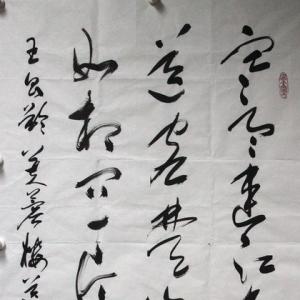 寒雨連江
送客楚山
如相问一片
王昌龄芙蓉楼送